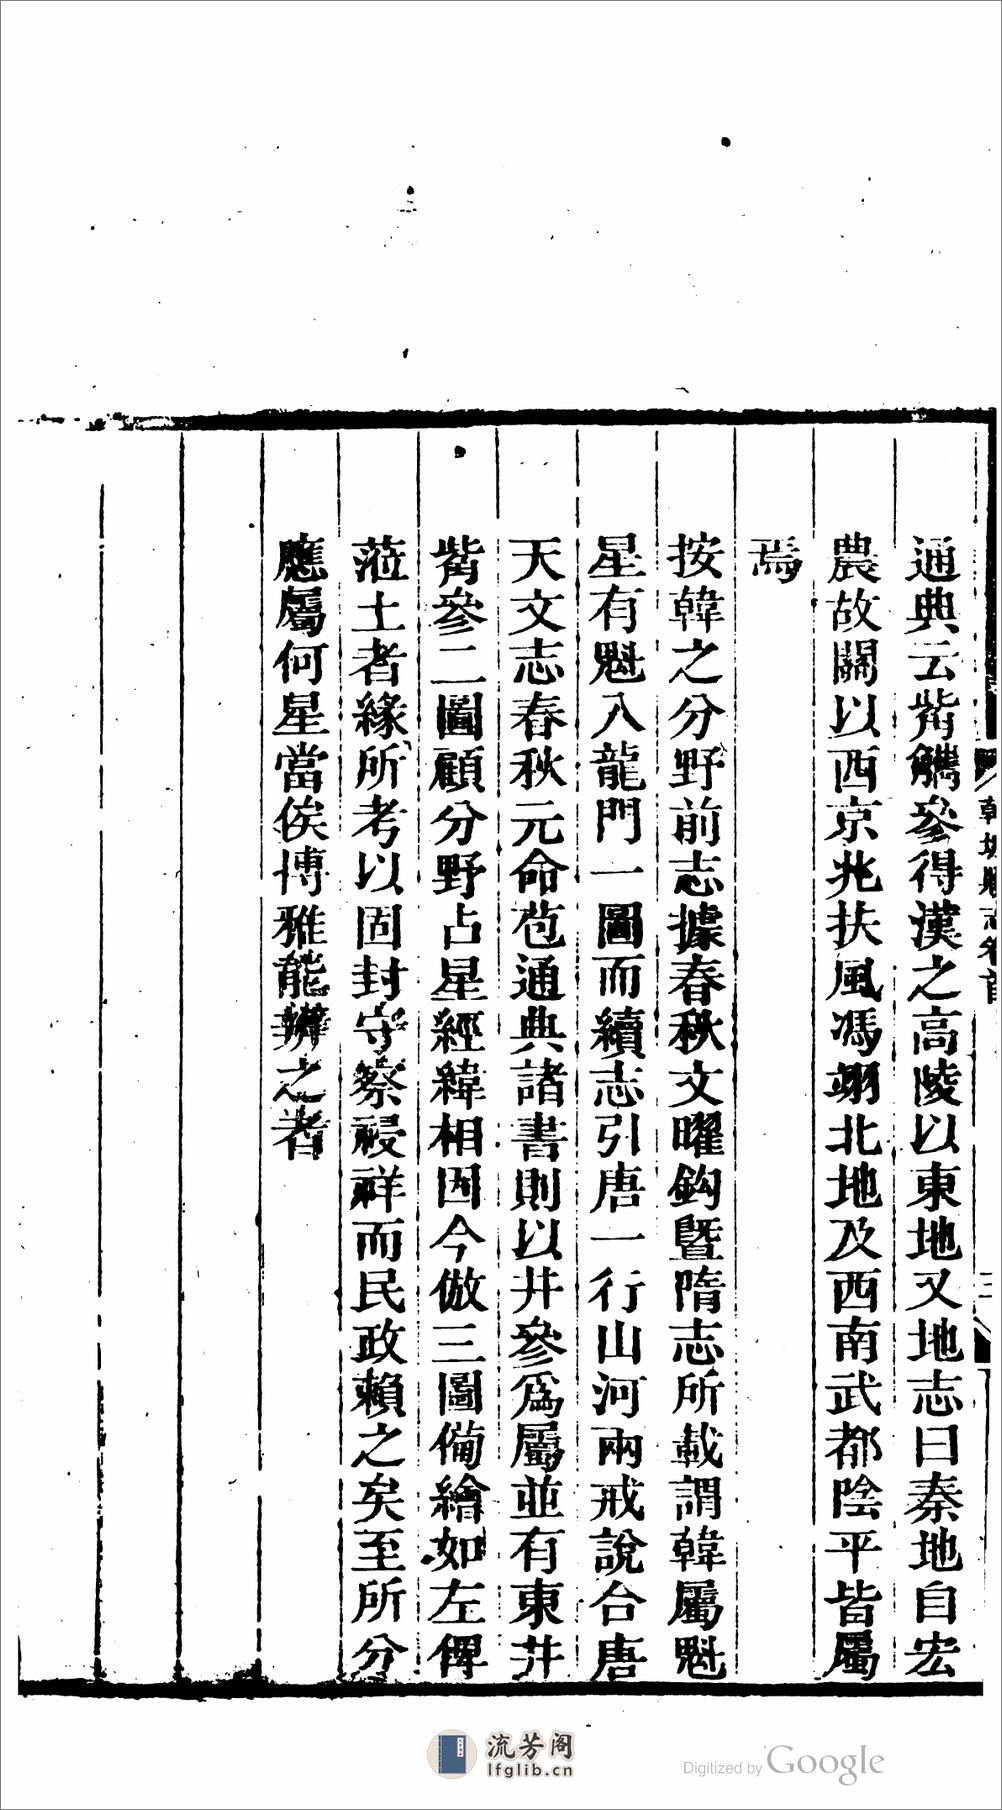 通典云觜觿參得漢之高陵以東地又地志曰秦地自宏
農故關以西京兆扶風馮翊北地及西南武都陰平皆屬
焉
按韓之分野前志據春秋文曜鈎暨隋志所載謂韓屬魁
星有魁八龍門一圖而續志引唐一行山河兩戒說合唐
天文志春秋元命苞通典諸書則以井參爲屬並有東井
觜參二圖顧分野占星經緯相因今倣三圖備繪如左俾
蒞土者緣所考以固封守察祲祥而民政賴之矣至所分
應屬何星當俟博雅能辨之者
韓城縣志卷首
流芳阁
lfglib.cn
Digitized by Google